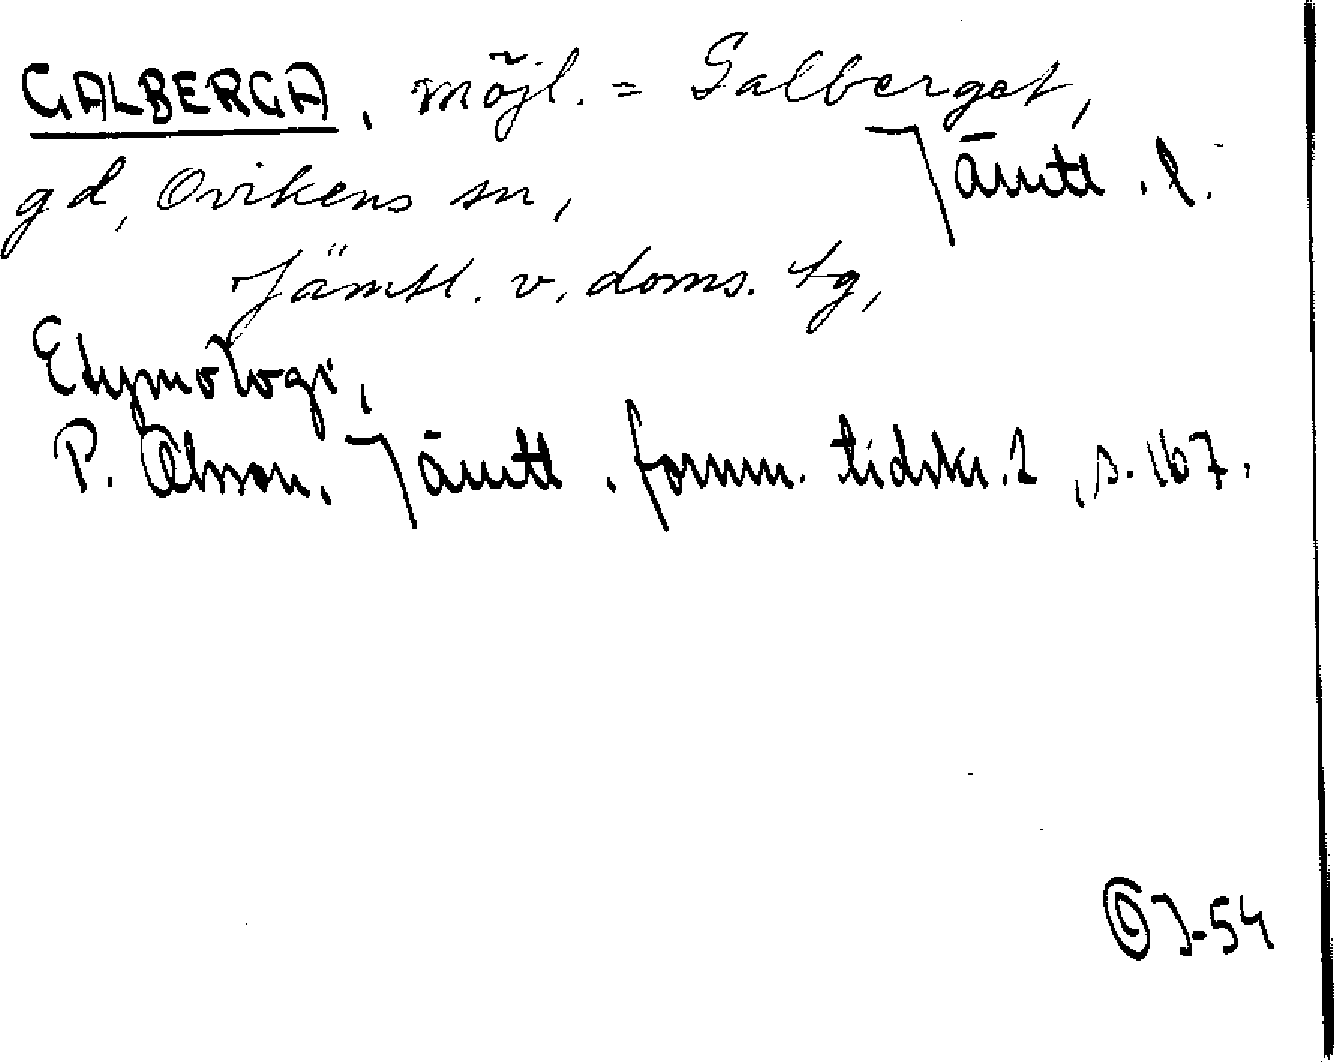 GALBERGA, möjl. = Galberget,
Jämtl. l.
gd, Ovikens sn,
Jämtl. v. doms. tg,
Etymologi,
P. Olsson. Jämtl. fornm. tidskr. 2, s. 167.
J-54